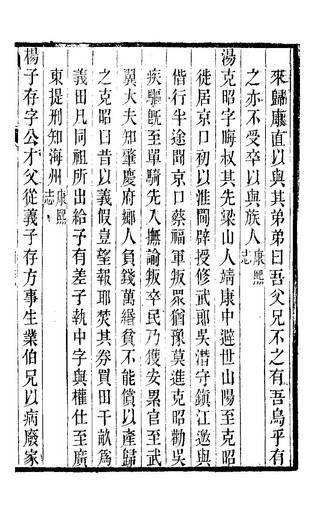 來歸康直以與其弟弟曰吾父兄不之有吾烏乎有
之亦不受卒以與族人康熙志
湯克昭字晦叔其先梁山人靖康中避世山陽至克昭
徙居京口初以淮閫辟授修武郎吳潛守鎮江邀與
偕行半途聞京口蔡福軍叛眾猶豫莫進克昭勸吳
疾驅既至單騎先入撫諭叛卒民乃獲安累官至武
翼大夫知肇慶府鄉人負錢萬緡貧不能償以產歸
之克昭曰昔以義假豈望報耶焚其券買田千畝爲
義田凡同祖所出給予有差子執中字與權仕至廣
東提刑知海州康熙志
楊子存字公才父從義子存方事生業伯兄以病廢家